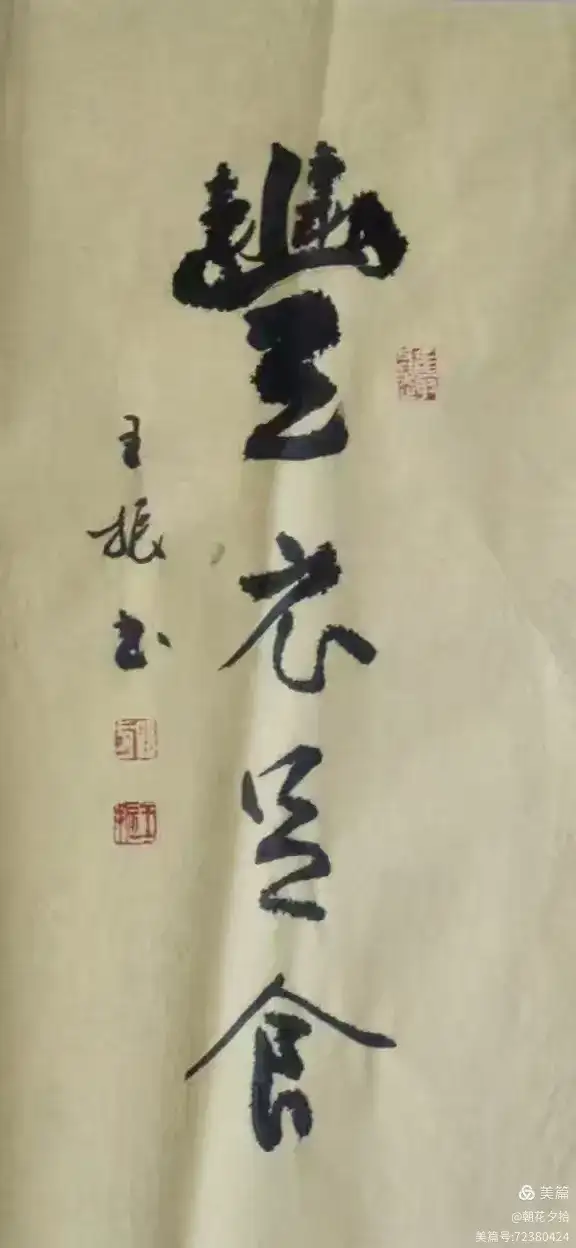 豐衣足食
王振书
美篇
@朝花夕拾
美篇号:72380424